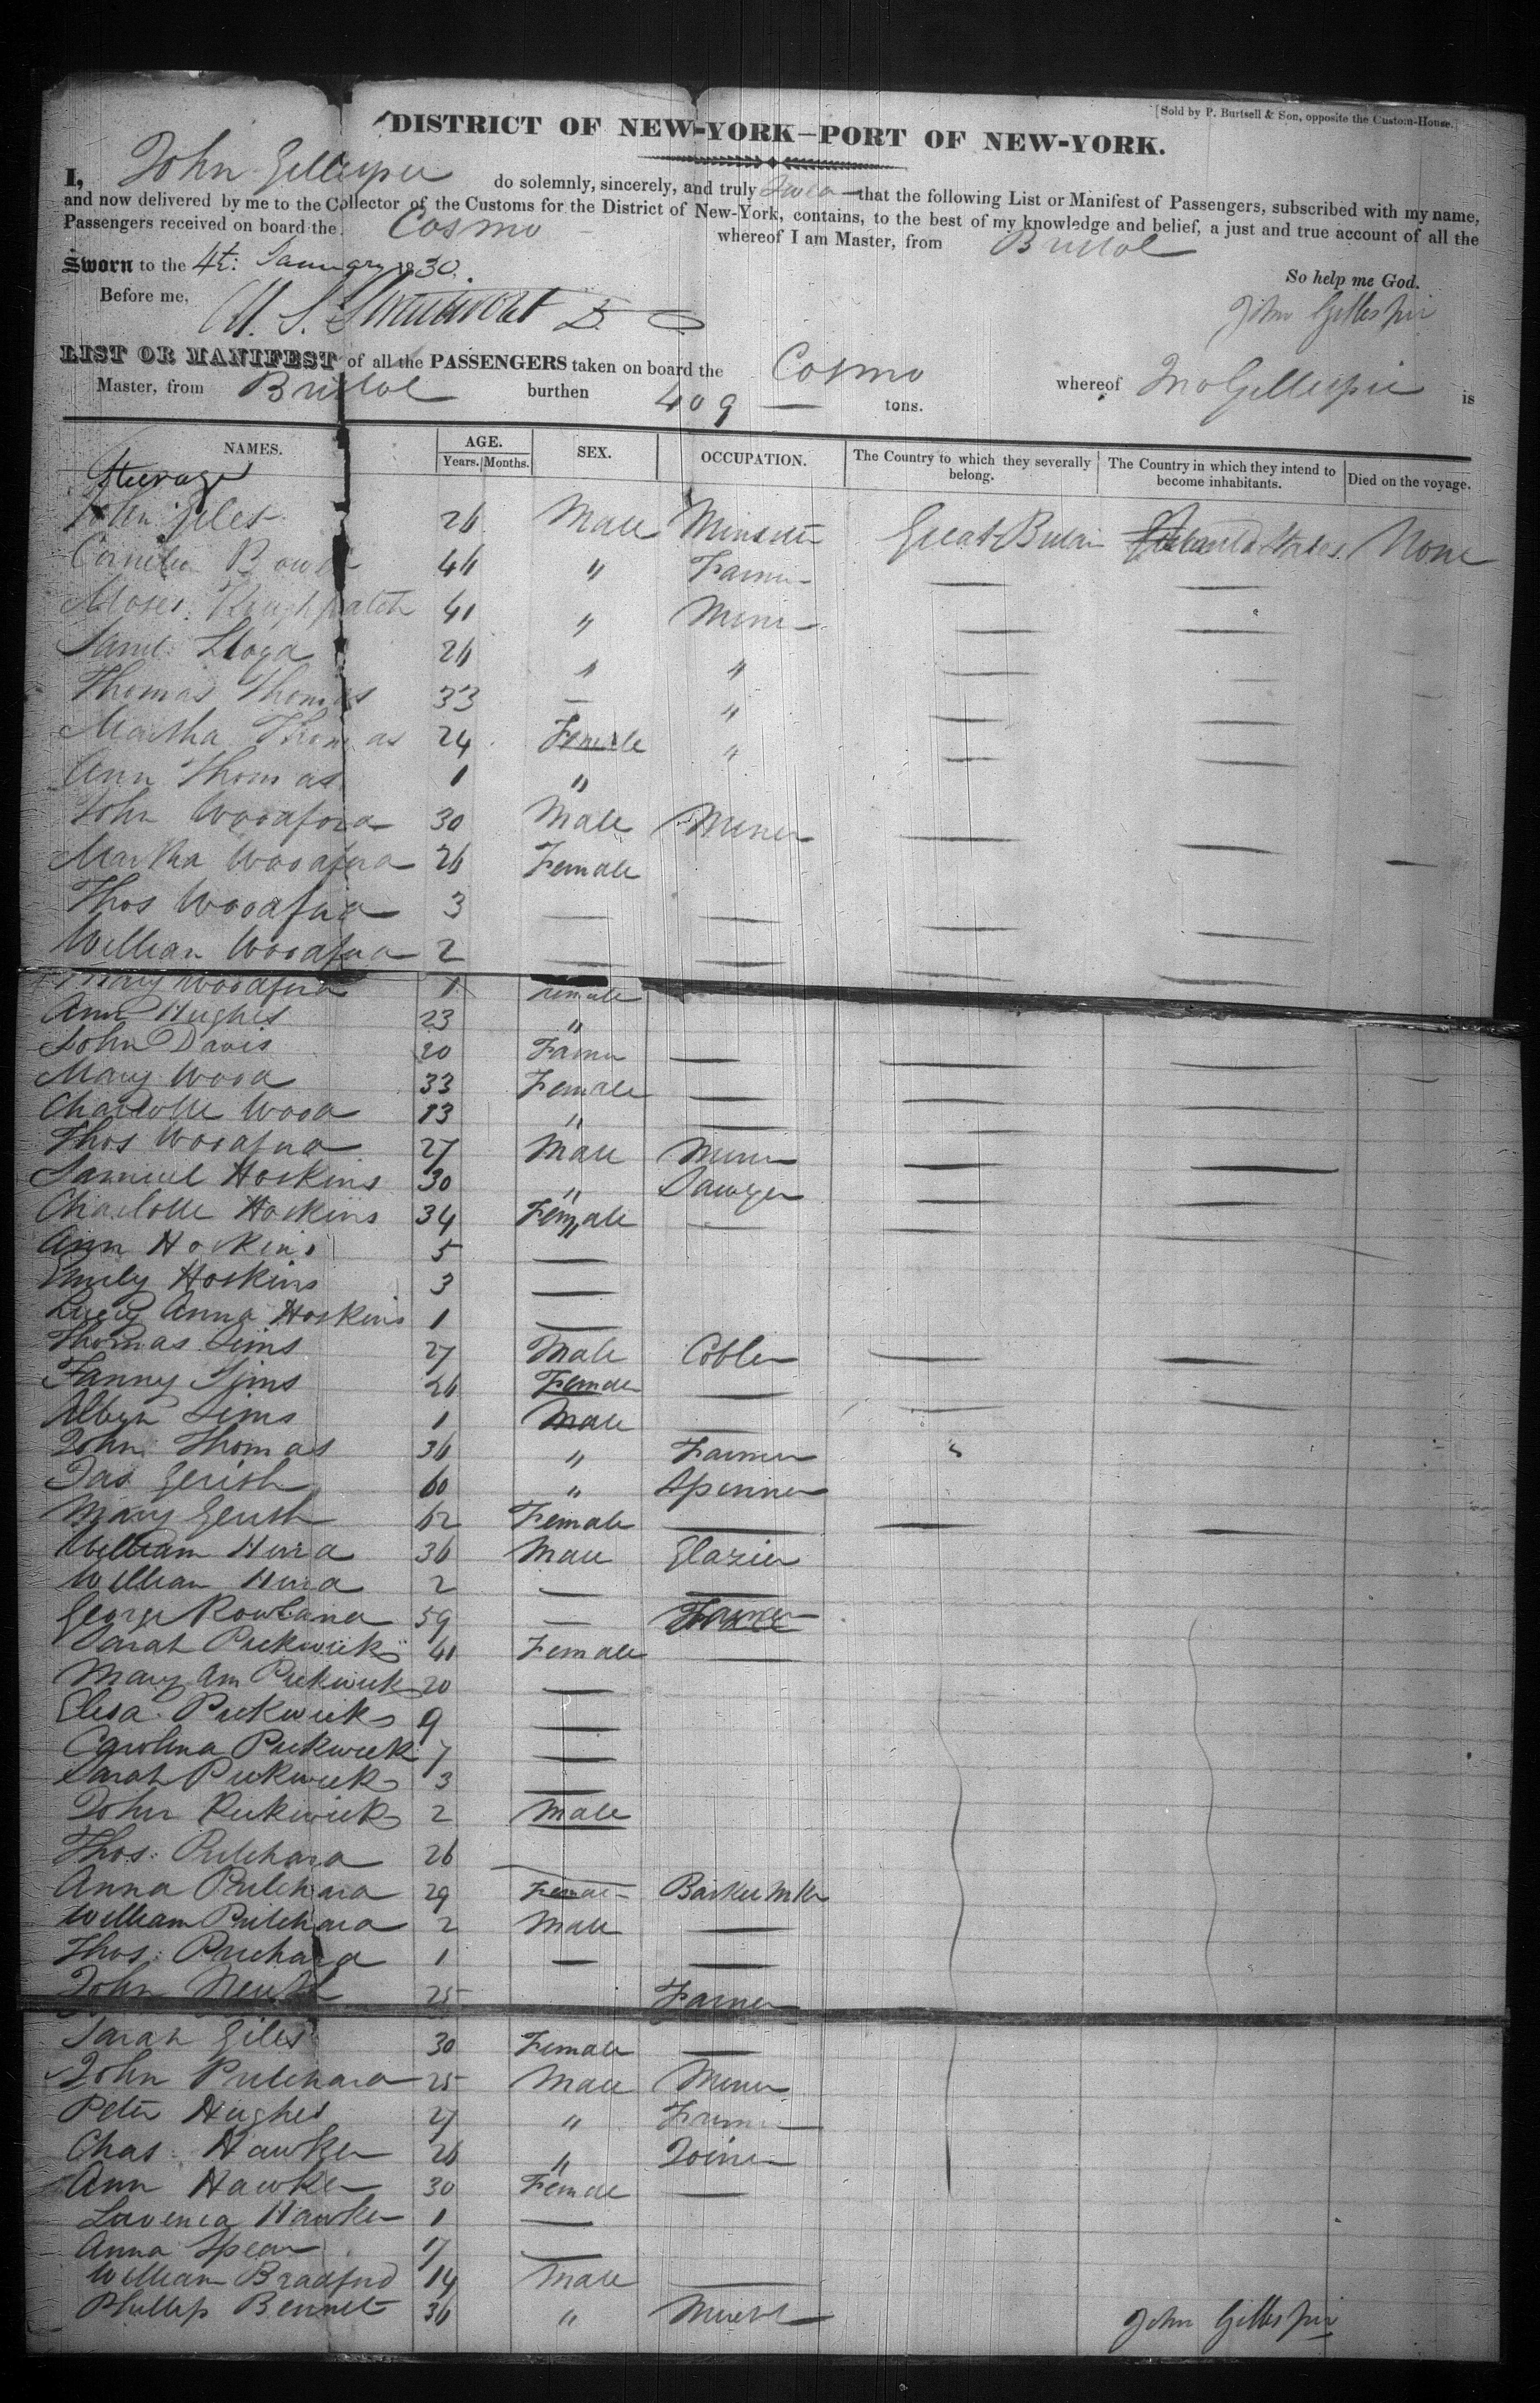 [Sold by P. Burtsell & Son, opposite the Custom-House.]
DISTRICT OF NEW-YORK—PORT OF NEW-YORK.
I, John Gillespie do solemnly, sincerely, and truly swear that the following List or Manifest of Passengers, subscribed with my name,
and now delivered by me to the Collector of the Customs for the District of New-York, contains, to the best of my knowledge and belief, a just and true account of all the
Passengers received on board the Cosmo whereof I am Master, from Bristol
Sworn to the 4th: January 1830.
So help me God.
Before me,
John Gillespie
LIST OR MANIFEST of all the PASSENGERS taken on board the Cosmo whereof Jno Gillespie is
Master, from Bristol burthen 409 tons.
NAMES. AGE. Years. Months. SEX. OCCUPATION. The Country to which they severally belong. The Country in which they intend to become inhabitants. Died on the voyage.
Steerage
John Giles 26 Male Great Britain United States None
Bowen 46 " Farmer
Moses 41 " Miner
Saml: Lloyd 26 " "
Thomas Thomas 33 — "
Martha Thomas 24 Female "
Ann Thomas 1 "
John Woodford 30 Male Miner
Martha Woodford 26 Female
Thos Woodford 3 — —
William Woodford 2 — —
Mary Woodford 1 Female
Ann Hughes 23 "
John Davis 20 Farmer —
Mary Wood 33 Female —
Charlotte Wood 13 " —
Thos Woodford 27 Male Miner
Samuel Hoskins 30 " Sawyer
Charlotte Hoskins 34 Female —
Ann Hoskins 5 —
Emily Hoskins 3 —
Lucy Anna Hoskins 1 —
Thomas Sims 27 Male Cobler
Fanny Sims 26 Female —
Sims 1 Male —
John Thomas 36 " Farmer
Jas Gerish 60 " Spinner
Mary Gerish 62 Female —
William Hurd 36 Male Glazier
William Hurd 2 — —
George Rowland 59 — Farmer
Sarah Pickwick 41 Female —
Mary Ann Pickwick 20 —
Elisa Pickwick 9 —
Carolina Pickwick 7 —
Sarah Pickwick 3 —
John Pickwick 2 Male
Thos: Pritchard 26 —
Anna Pritchard 29 Female Basket Mkr
William Pritchard 2 Male —
Thos: Prichard 1 — —
John 25 Farmer
Sarah Giles 30 Female —
John Pritchard 25 Male Miner
Peter Hughes 27 " Farmer
Chas: Hawker 26 " Joiner
Ann Hawker 30 Female —
Lavenia Hawker 1 —
Anna Spear 17 —
William Bradford 14 Male —
Phillip Bennet 36 "
John Gillespie